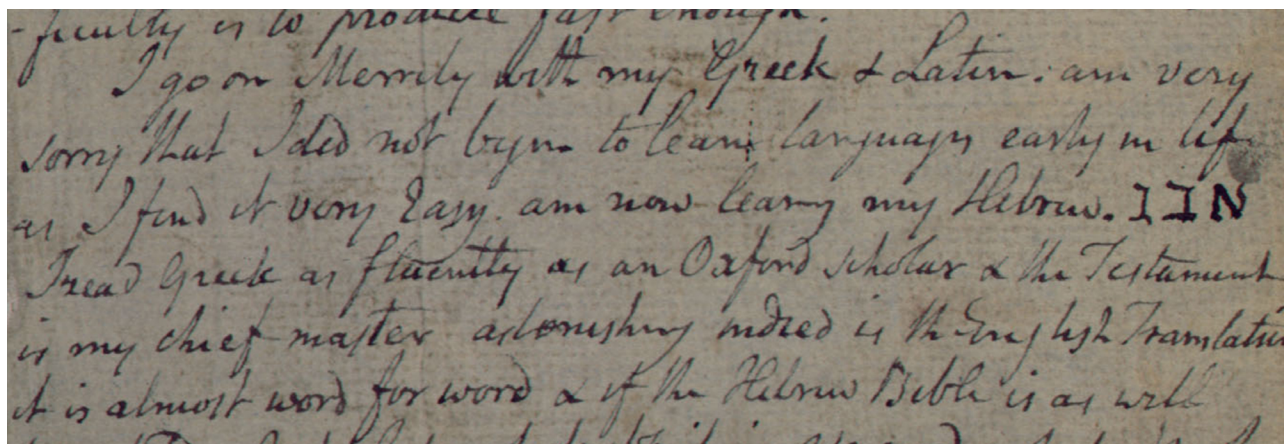 -ficulty is to produce fast enough.
I go on Merrily with my Greek & Latin: am very
sorry that I did not begin to learn languages early in life
as I find it very Easy. am now learng my Hebrew. אבג
I read Greek as fluently as an Oxford scholar & the Testament
is my chief master astonishing indeed is the English Translation
it is almost word for word & if the Hebrew Bible is as well